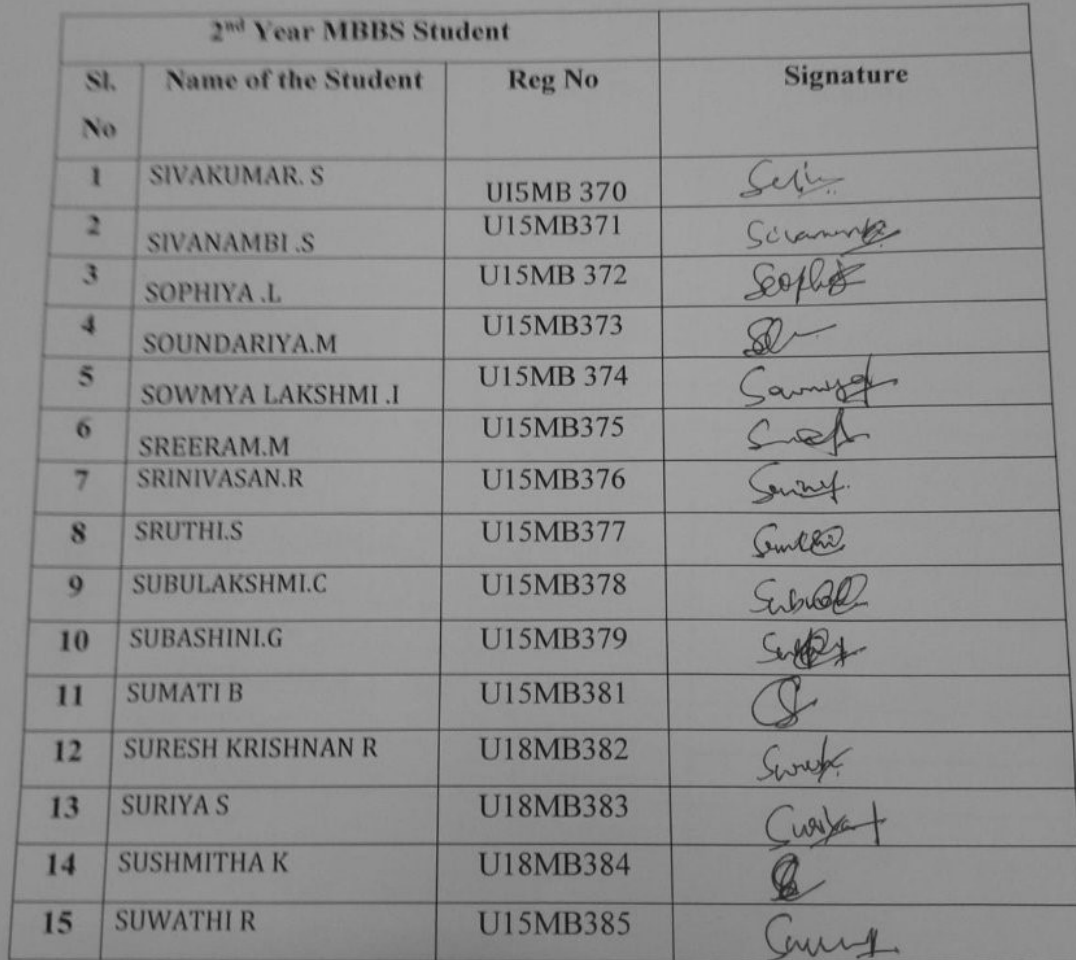 2nd Year MBBS Student
Sl. No Name of the Student Reg No Signature
1 SIVAKUMAR. S UI5MB 370
2 SIVANAMBI .S U15MB371
3 SOPHIYA .L U15MB 372
4 SOUNDARIYA.M U15MB373
5 SOWMYA LAKSHMI .I U15MB 374
6 SREERAM.M U15MB375
7 SRINIVASAN.R U15MB376
8 SRUTHI.S U15MB377
9 SUBULAKSHMI.C U15MB378
10 SUBASHINI.G U15MB379
11 SUMATI B U15MB381
12 SURESH KRISHNAN R U18MB382
13 SURIYA S U18MB383
14 SUSHMITHA K U18MB384
15 SUWATHI R U15MB385